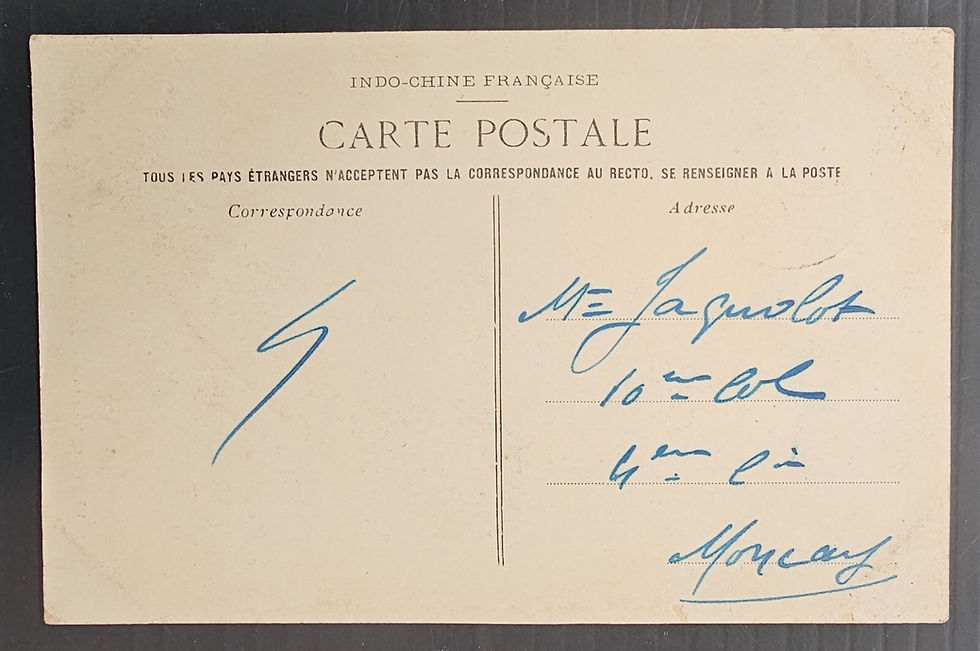 INDO-CHINE FRANÇAISE
CARTE POSTALE
TOUS LES PAYS ÉTRANGERS N'ACCEPTENT PAS LA CORRESPONDANCE AU RECTO, SE RENSEIGNER A LA POSTE
Correspondance
Adresse
Jagnolot
10me Col
4em Cie
Moncay